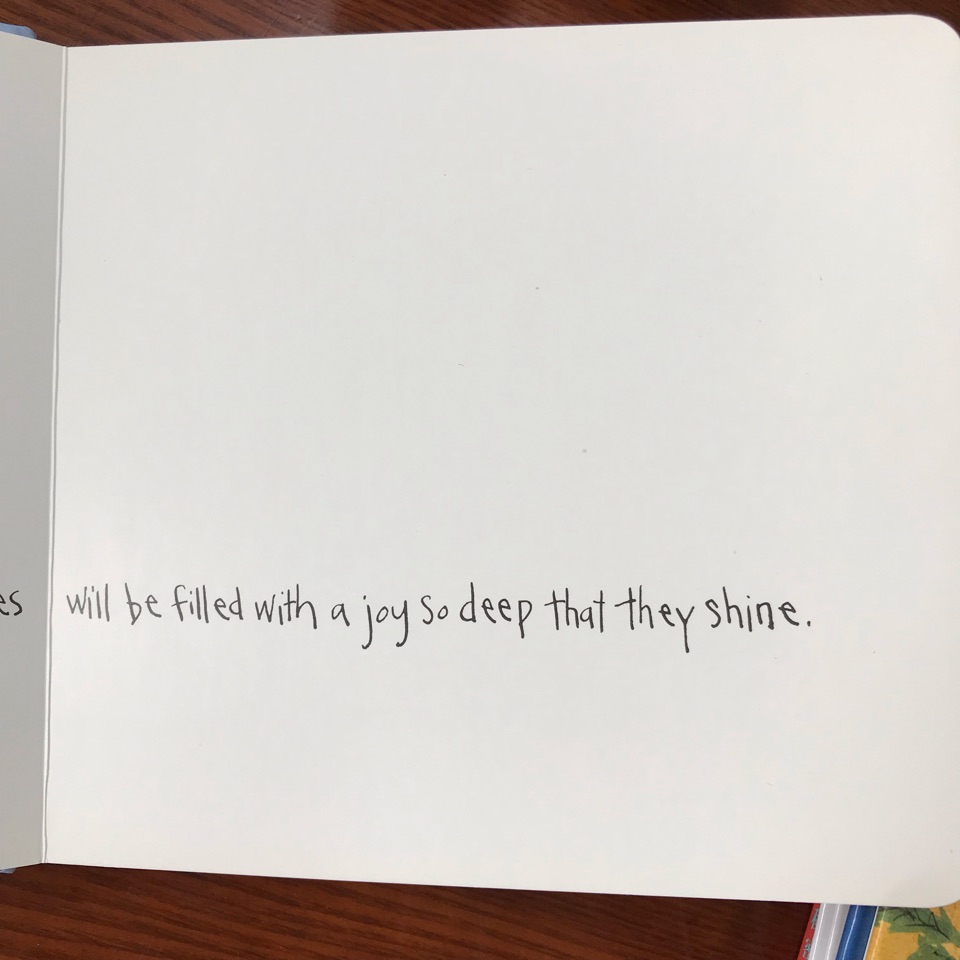 will be filled with a joy so deep that they shine.